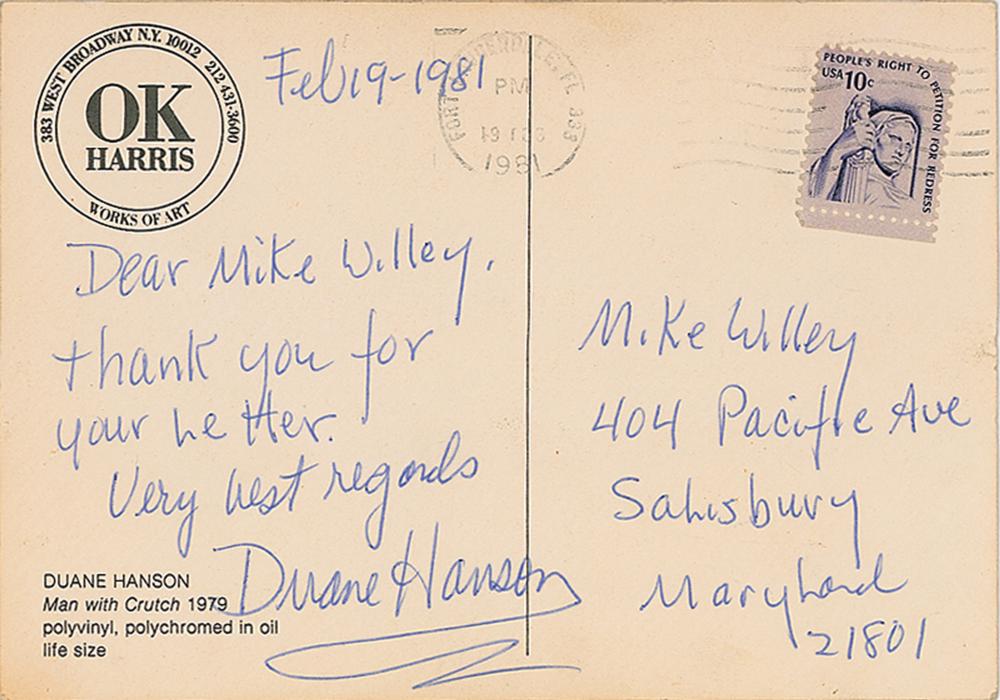 383 WEST BROADWAY N.Y. 10012 212-431-3600
OK
HARRIS
WORKS OF ART
Feb 19-1981
FORT LAUDERDALE, FL 333
PM
19 FEB
1981
PEOPLE'S RIGHT TO PETITION FOR REDRESS
USA 10c
Dear Mike Willey,
thank you for
your letter.
Very best regards
Duane Hanson
DUANE HANSON
Man with Crutch 1979
polyvinyl, polychromed in oil
life size
Mike Willey
404 Pacific Ave
Salisbury
Maryland
21801